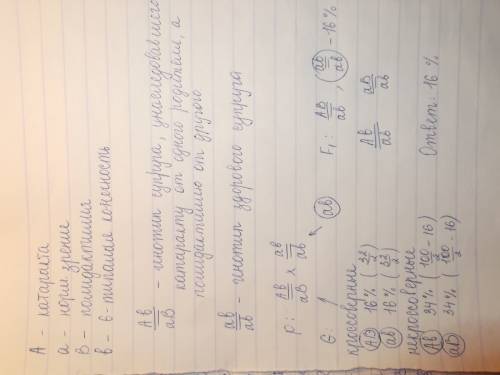 А – катаракта
а – норм зрение
В – полидактилия
в – 6-типалая конечность
Ab/aB – генотип супруга, унаследовавшего
катаракту от одного родителя, а
полидактилию от другого
ab/ab – генотип здорового супруга
P: Ab/aB x ab/ab
G: ab
F₁: AB/ab, ab/ab – 16%
Ab/ab aB/ab
кроссоверные
AB 16% (32/2)
ab 16% (32/2)
некроссоверные
Ab 34% (100/2 - 16)
aB 34% (100/2 - 16)
Ответ: 16%